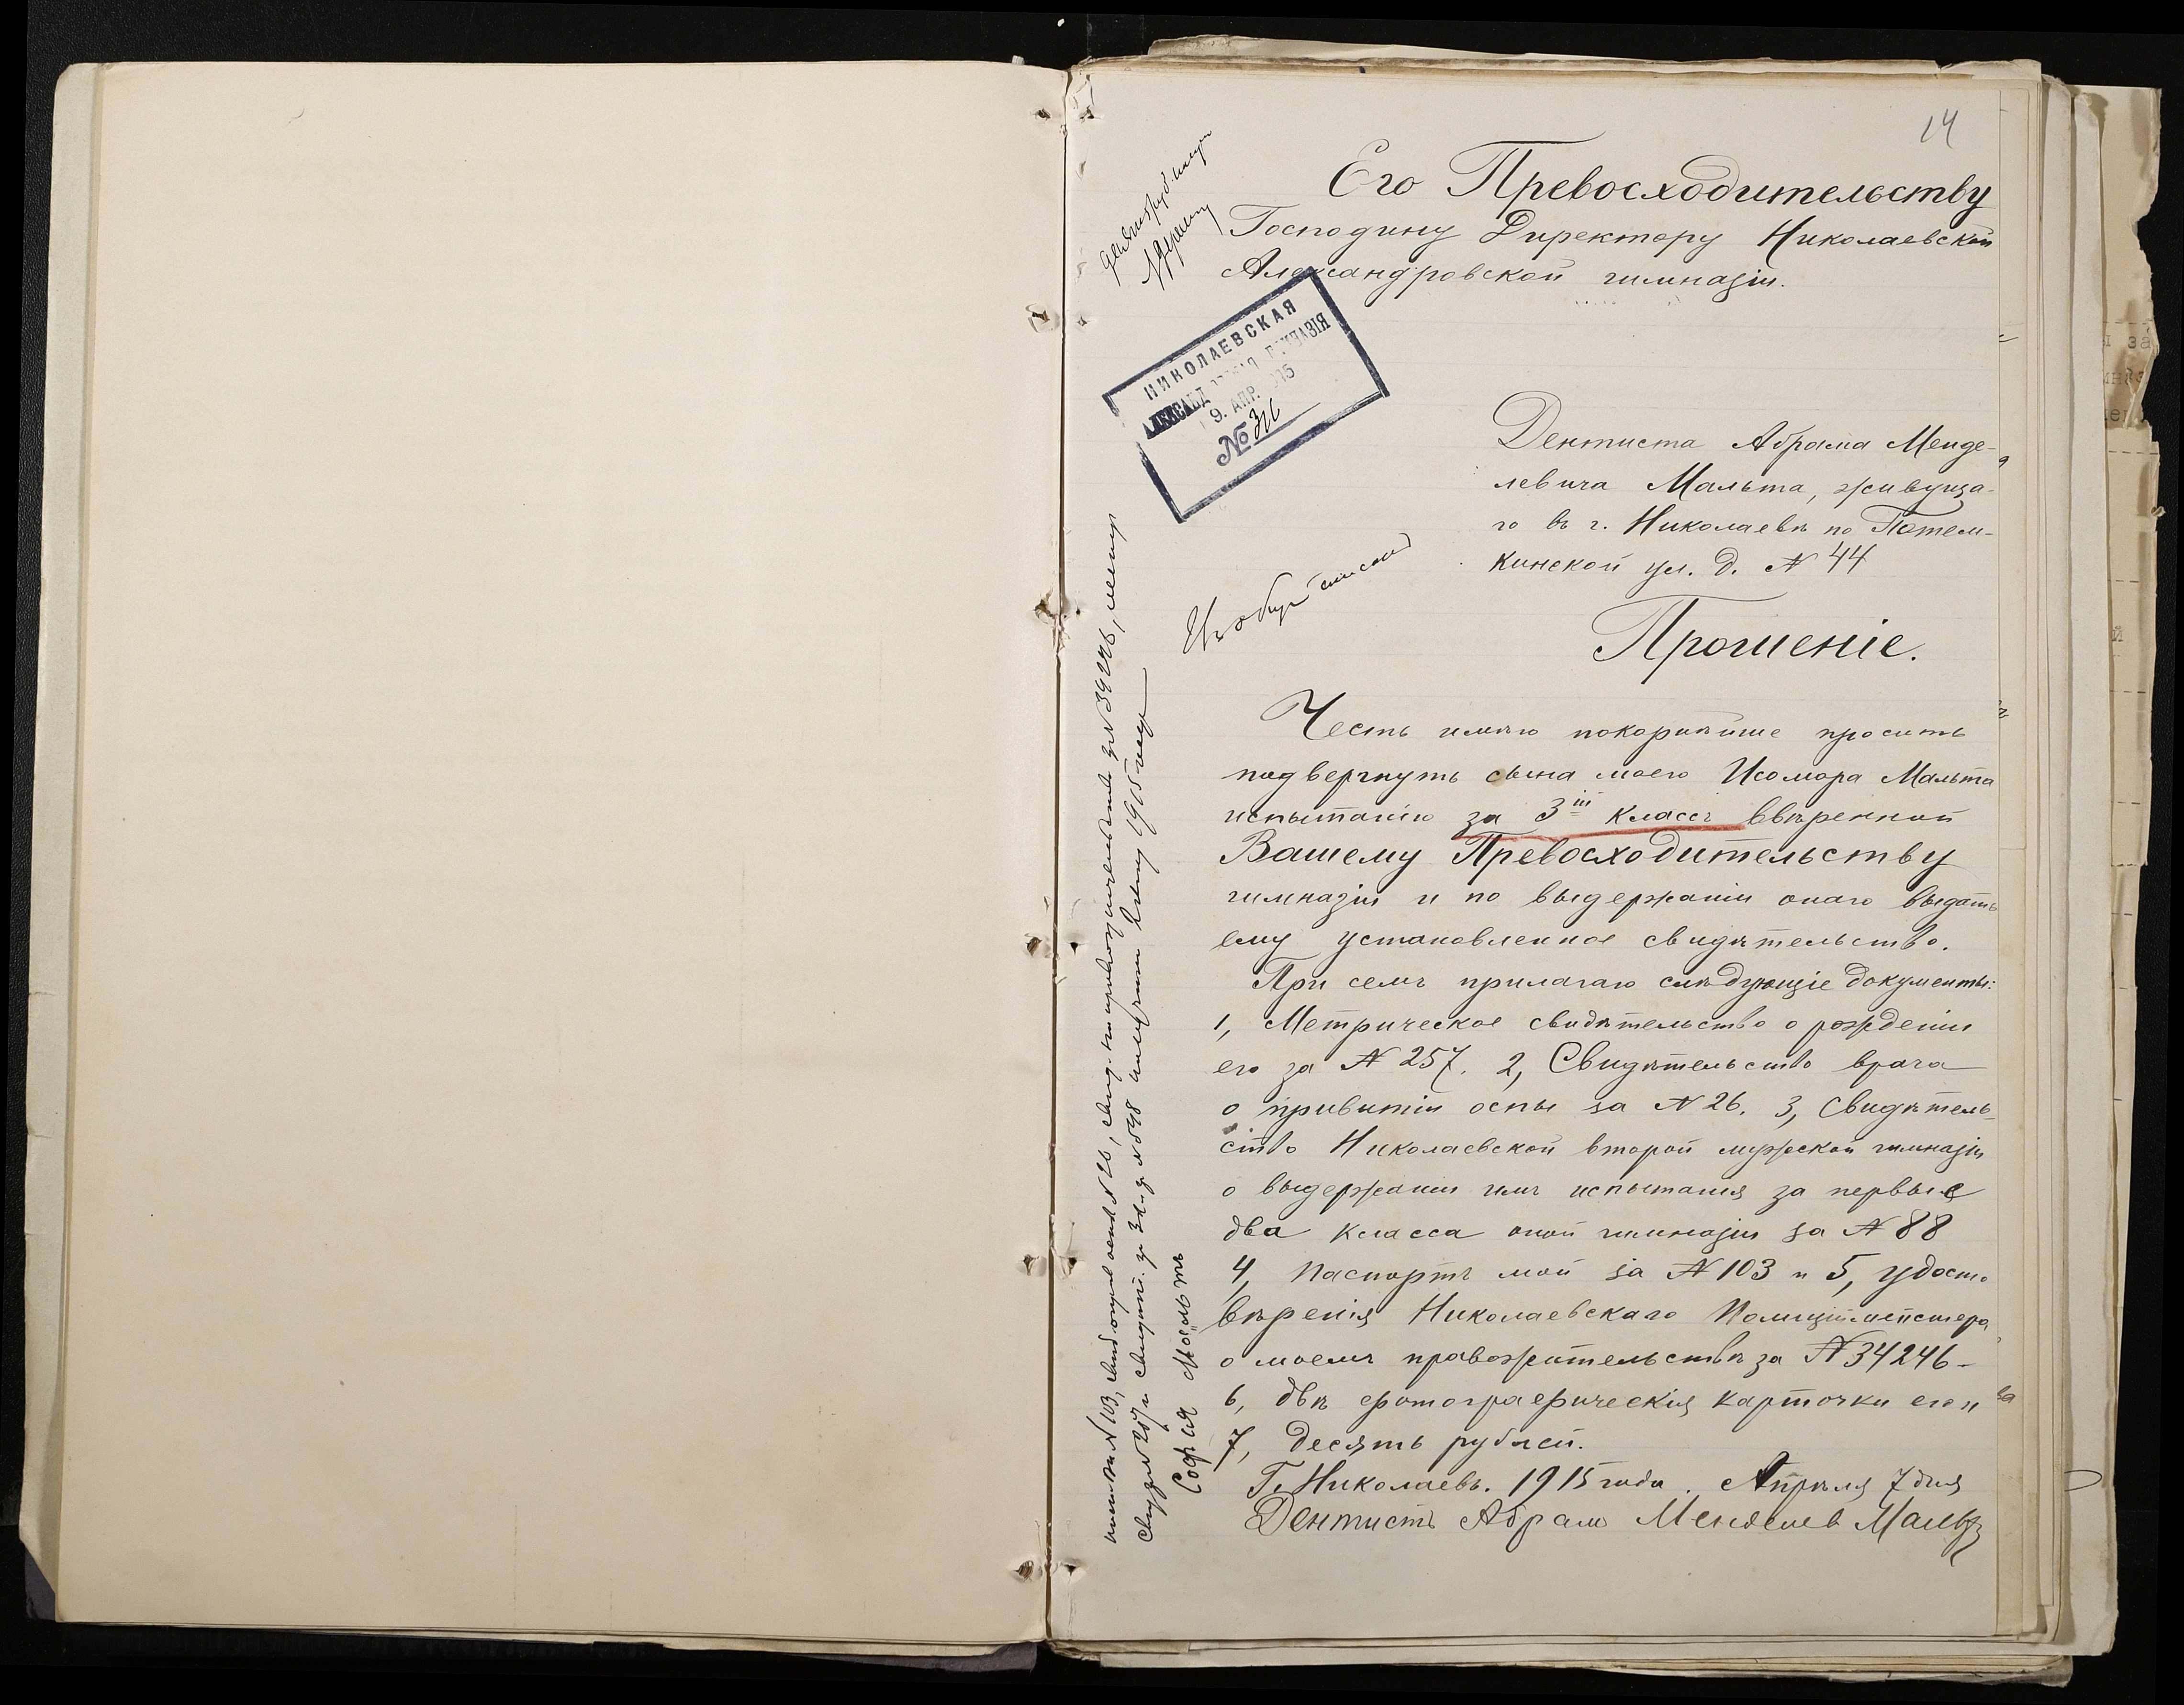 14
Его Превосходительству
Господину Директору Николаевской
Александровской гимназіи.
НИКОЛАЕВСКАЯ
АЛЕКСАНД ГИМНАЗІЯ
9. АПР. 15
№ 316
Дентиста Абрама Менде-
левича Мальта, живуща-
го въ г. Николаевѣ по Потем-
кинской ул. д. № 44
Прошеніе.
Честь имѣю покорнѣйше просить
подвергнуть сына моего Исомара Мальта
испытанію за 3ій классъ ввѣренной
Вашему Превосходительству
гимназіи и по выдержаніи онаго выдать
ему установленное свидѣтельство.
При семъ прилагаю слѣдующіе документы:
1, Метрическое свидѣтельство о рожденіи
его за № 257. 2, Свидѣтельство врача
о привитіи оспы за № 26. 3, Свидѣтель-
ство Николаевской второй мужской гимназіи
о выдержаніи имъ испытанія за первые
два класса оной гимназіи за № 88
4, Паспортъ мой за № 103 и 5, удосто
вѣренія Николаевскаго Полицiймейстера
о моемъ правожительствѣ за № 34246-
6, двѣ фотографическія карточки его и
7, Десять рублей.
Г. Николаевъ. 1915 года. Апрѣля 7 дня
Дентистъ Абрам Менделев Мальт
за № 103, оспы № 26, за № 34246,
за № 257 и 1915 года
София Мальтъ